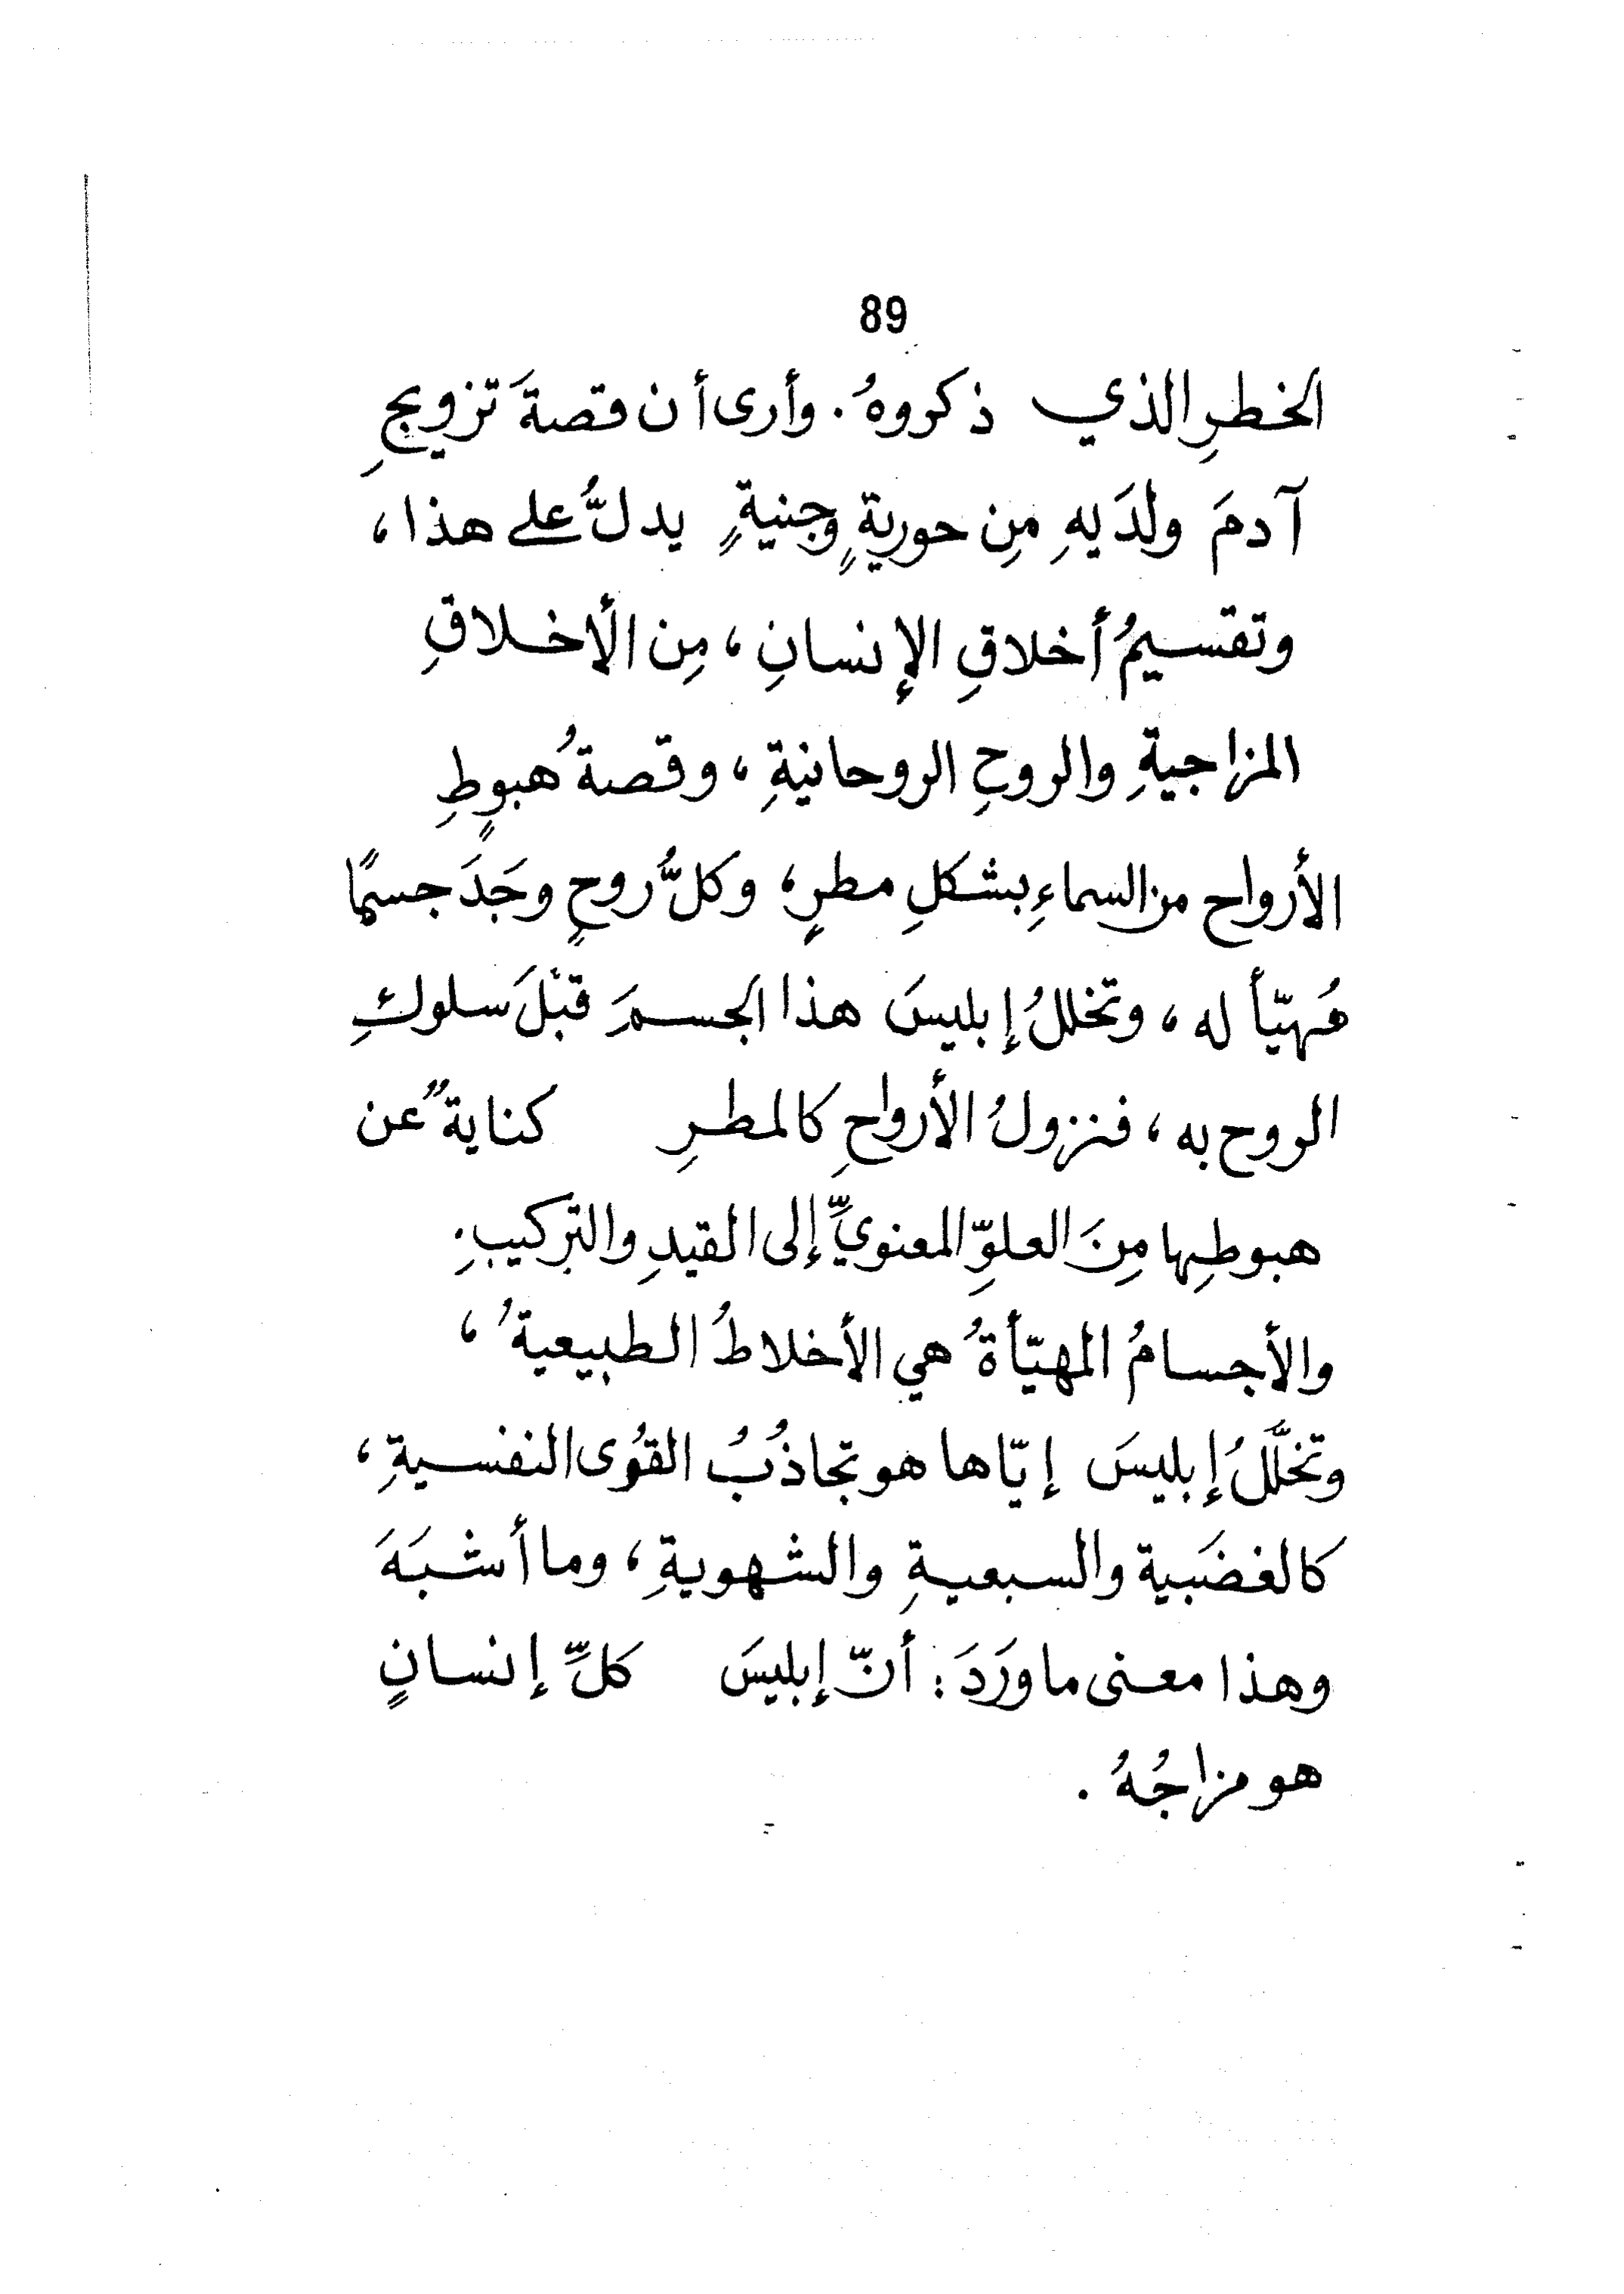 89
الخطرِ الذي ذكروهُ. وأرى أن قصةَ تزويجِ
آدمَ ولدَيهِ مِن حوريةٍ وجنيةٍ يدلُّ على هذا،
وتقسيمُ أخلاقِ الإنسانِ، مِن الأخلاقِ
المزاجيةِ والروحِ الروحانيةِ، وقصةُ هبوطِ
الأرواح من السماءِ بشكلِ مطرٍ، وكلُّ روحٍ وجَدَ جسمًا
مُهيّأ له، وتخللُ إبليسَ هذا الجسمَ قبْلَ سلوكِ
الروح به، فنزولُ الأرواحِ كالمطرِ كنايةٌ عن
هبوطِها مِنَ العلوِّ المعنويِّ إلى القيدِ والتركيبِ.
والأجسامُ المهيّأةُ هي الأخلاطُ الطبيعيةُ،
وتخلَّلُ إبليسَ إيّاها هو تجاذُبُ القُوى النفسيةِ،
كالغضَبية والسبعيةِ والشهويةِ، وما أشبَهَ
وهذا معنى ما ورَدَ: أنّ إبليسَ كلِّ إنسانٍ
هو مزاجُهُ.